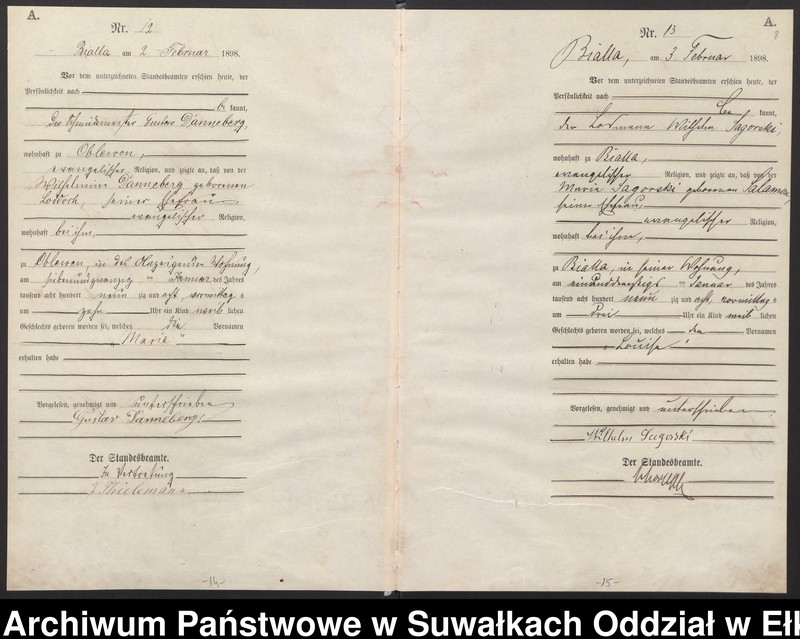 A.
Nr. 12
Bialla am 2 Februar 1898.
Vor dem unterzeichneten Standesbeamten erschien heute, der
Persönlichkeit nach
be kannt,
der Schmiedemeister Gustav Danneberg,
wohnhaft zu Oblewen,
evangelischer Religion, und zeigte an, daß von der
Wilhelmine Danneberg geborenen
seiner Ehefrau
evangelischer Religion,
wohnhaft bei ihm,
zu Oblewen, in des Anzeigenden Wohnung,
am siebenundzwanzig ten Januar des Jahres
tausend acht hundert neun zig und acht, vormittag s
um zehn Uhr ein Kind weib lichen
Geschlechts geboren worden sei, welches die Vornamen
„Marie"
erhalten habe
Vorgelesen, genehmigt und unterschrieben
Gustav Danneberg.
Der Standesbeamte.
In Vertretung
Thielemann
-14-
A.
Nr. 13
Bialla, am 3. Februar 1898.
Vor dem unterzeichneten Standesbeamten erschien heute, der
Persönlichkeit nach
be kannt,
der Losmann Wilhelm Sagorski
wohnhaft zu Bialla,
evangelischer Religion, und zeigte an, daß von der
Marie Sagorski geborenen
seiner Ehefrau
evangelischer Religion,
wohnhaft bei ihm,
zu Bialla, in seiner Wohnung,
am einunddreißigst en Januar des Jahres
tausend acht hundert neun zig und acht, vormittag s
um drei Uhr ein Kind weib lichen
Geschlechts geboren worden sei, welches den Vornamen
„Louise"
erhalten habe
Vorgelesen, genehmigt und unterschrieben
Wilhelm Sagorski
Der Standesbeamte.
-15-
Archiwum Państwowe w Suwałkach Oddział w Eł